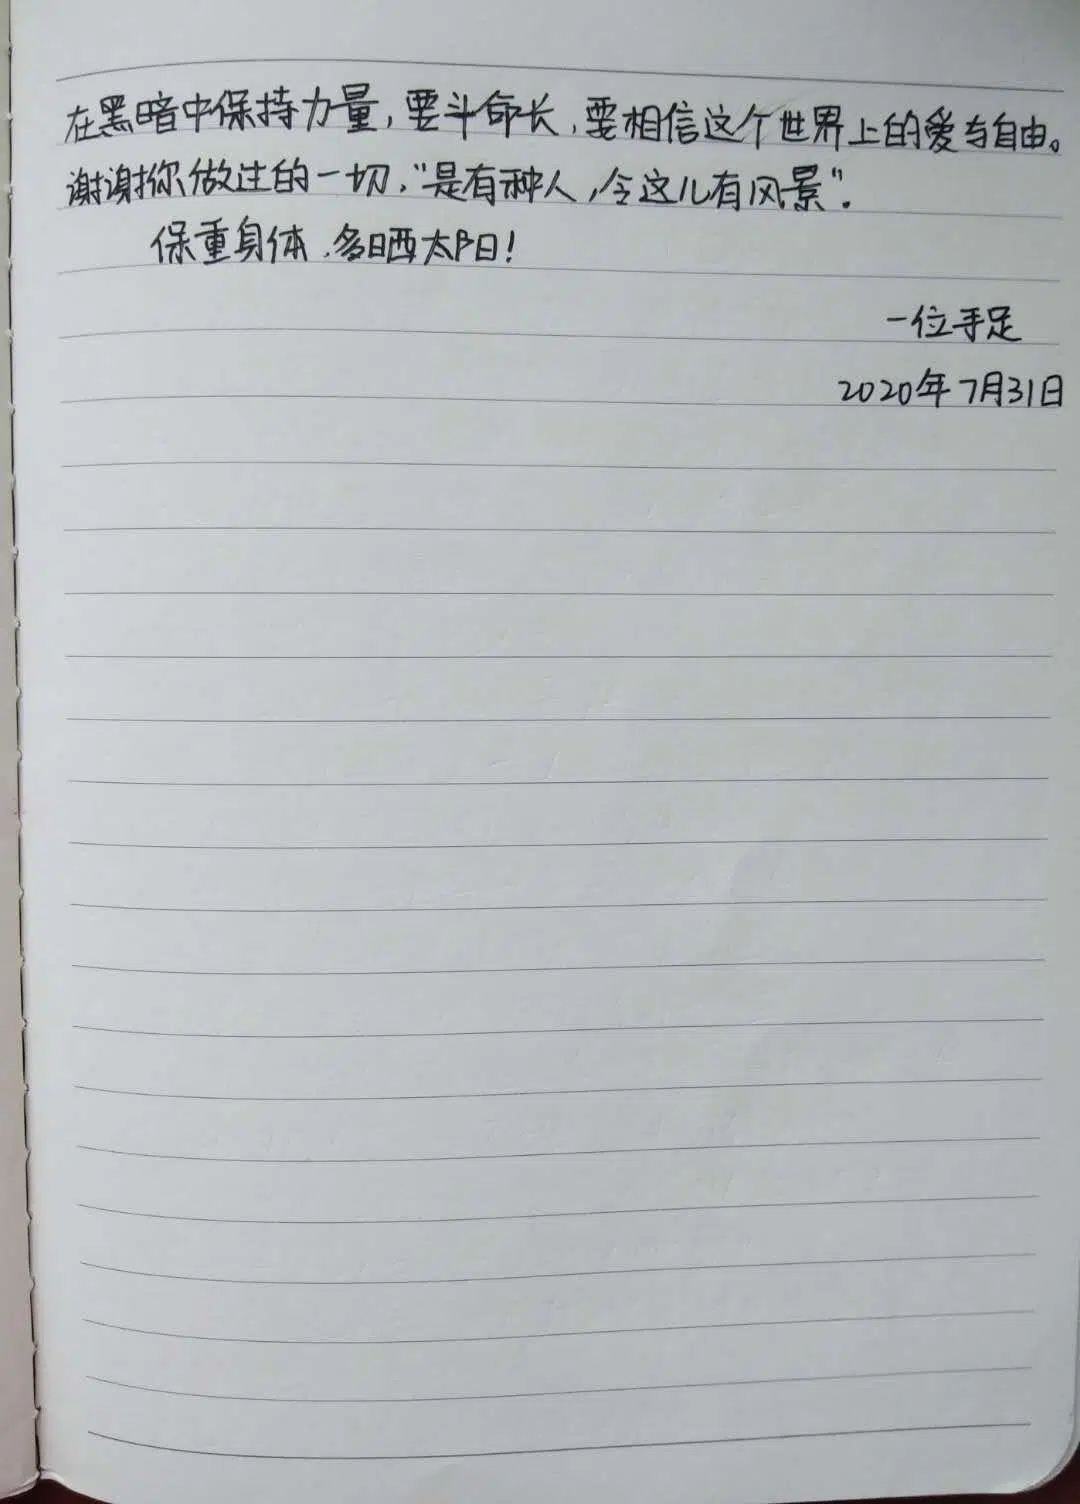 在黑暗中保持力量,要斗命长,要相信这个世界上的爱与自由。
谢谢你做过的一切,“是有种人,令这儿有风景”.
保重身体,多晒太阳!
一位手足
2020年7月31日